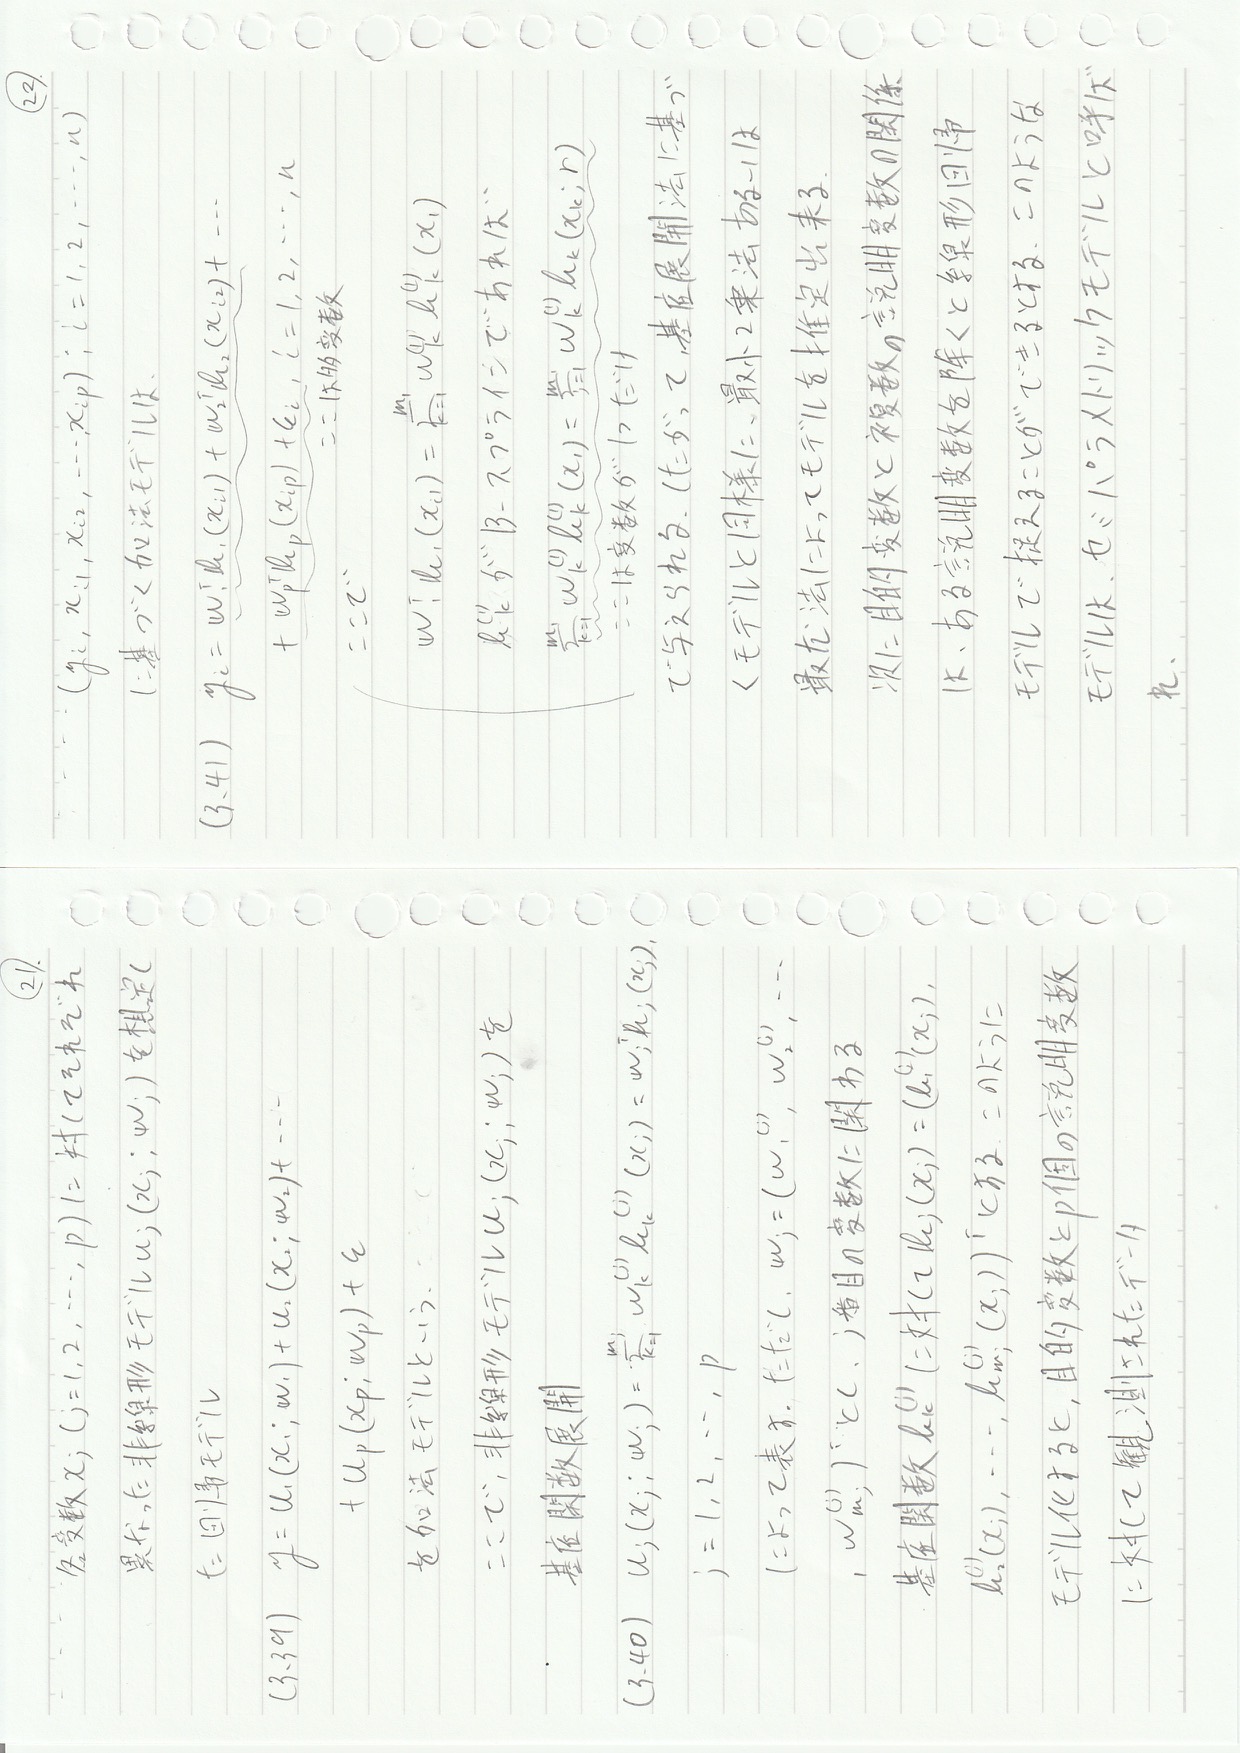 ㉑.
各変数 x_j (j=1,2,…,p) に対してそれぞれ
異なった非線形モデル u_j(x_j; w_j) を想定し
た回帰モデル
(3.39) y = u_1(x_1; w_1) + u_2(x_2; w_2) + …
+ u_p(x_p; w_p) + ε
を加法モデルという.
ここで, 非線形モデル u_j(x_j; w_j) を
基底関数展開
(3.40) u_j(x_j; w_j) = Σ_{k=1}^{m_j} w_k^{(j)} b_k^{(j)}(x_j) = w_j^T b_j(x_j),
j = 1, 2, …, p
によって表す. ただし, w_j = (w_1^{(j)}, w_2^{(j)}, …
, w_{m_j}^{(j)})^T とし, j番目の変数に関わる
基底関数 b_k^{(j)} に対して b_j(x_j) = (b_1^{(j)}(x_j),
b_2^{(j)}(x_j), …, b_{m_j}^{(j)}(x_j))^T とする. このように
モデル化すると, 目的変数とp個の説明変数
に対して観測されたデータ
㉒.
(y_i, x_{i1}, x_{i2}, …, x_{ip}) ; i = 1, 2, …, n)
に基づく加法モデルは.
(3.41) y_i = w_1^T b_1(x_{i1}) + w_2^T b_2(x_{i2}) + …
+ w_p^T b_p(x_{ip}) + ε_i, i = 1, 2, …, n
ここは多変数
ここで
w_1^T b_1(x_{i1}) = Σ_{k=1}^{m_1} w_k^{(1)} b_k^{(1)}(x_1)
b_k^{(1)} が B-スプラインであれば
Σ_{k=1}^{m_1} w_k^{(1)} b_k^{(1)}(x_1) = Σ_{j=1}^{m_1} w_k^{(1)} b_k(x_k; r)
ここは変数が1つだけ
で与えられる. したがって, 基底展開法に基づ
くモデルと同様に, 最小2乗法あるいは
最尤法によってモデルを推定出来る.
次に目的変数と複数の説明変数の関係
は, ある説明変数を除くと線形回帰
モデルで捉えることができるとする. このような
モデルは, セミパラメトリックモデルと呼ば
れ、